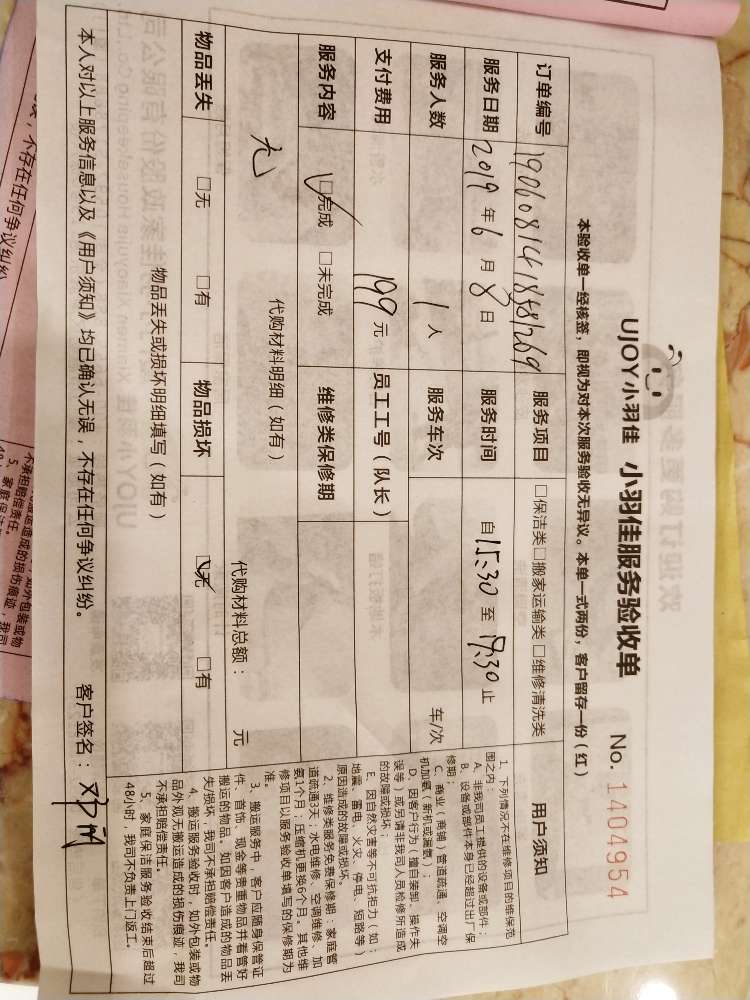 UJOY小羽佳 小羽佳服务验收单 No. 1404954
本验收单一经核签，即视为对本次服务验收无异议。本单一式两份，客户留存一份（红）
订单编号 服务项目 □保洁类□搬家运输类□维修清洗类
服务日期 2019年6月8日 服务时间 自15:30至19:30止
服务人数 1人 服务车次 车/次
支付费用 199元 员工工号（队长）
服务内容 ☑完成 □未完成 维修类保修期
代购材料明细（如有）
无
代购材料总额： 元
物品丢失 □无 □有 物品损坏 ☑无 □有
物品丢失或损坏明细填写（如有）
本人对以上服务信息以及《用户须知》均已确认无误，不存在任何争议纠纷。 客户签名：
用户须知
1、下列情况不在维修项目的维保范
围之内：
A、非我司员工提供的设备或部件；
B、设备或部件本身已经超过出厂保
修期；
C、商业（商铺）管道疏通、空调空
机加氨（新机或漏氨）；
D、因客户行为（擅自装卸、操作失
误等）或另请非我司人员检修所造成
的故障或损坏；
E、因自然灾害等不可抗拒力（如：
地震、雷电、火灾、停电、短路等）
原因造成的故障或损坏。
2、维修类服务免费保修期：家庭管
道疏通3天；水电维修、空调维修、加
氨1个月；压缩机更换6个月。其他维
修项目以服务验收单填写的保修期为
准。
3、搬运服务中，客户应随身保管证
件、首饰、现金等贵重物品并看管好
搬运的物品，如因客户造成的物品丢
失/损坏，我司不承担赔偿责任。
4、搬运服务验收时，如外包装或物
品外观无搬运造成的损伤痕迹，我司
不承担赔偿责任。
5、家庭保洁服务验收结束后超过
48小时，我司不负责上门返工。
不存在任何争议纠纷
造成的损伤痕迹，我司
不承担赔偿责任。